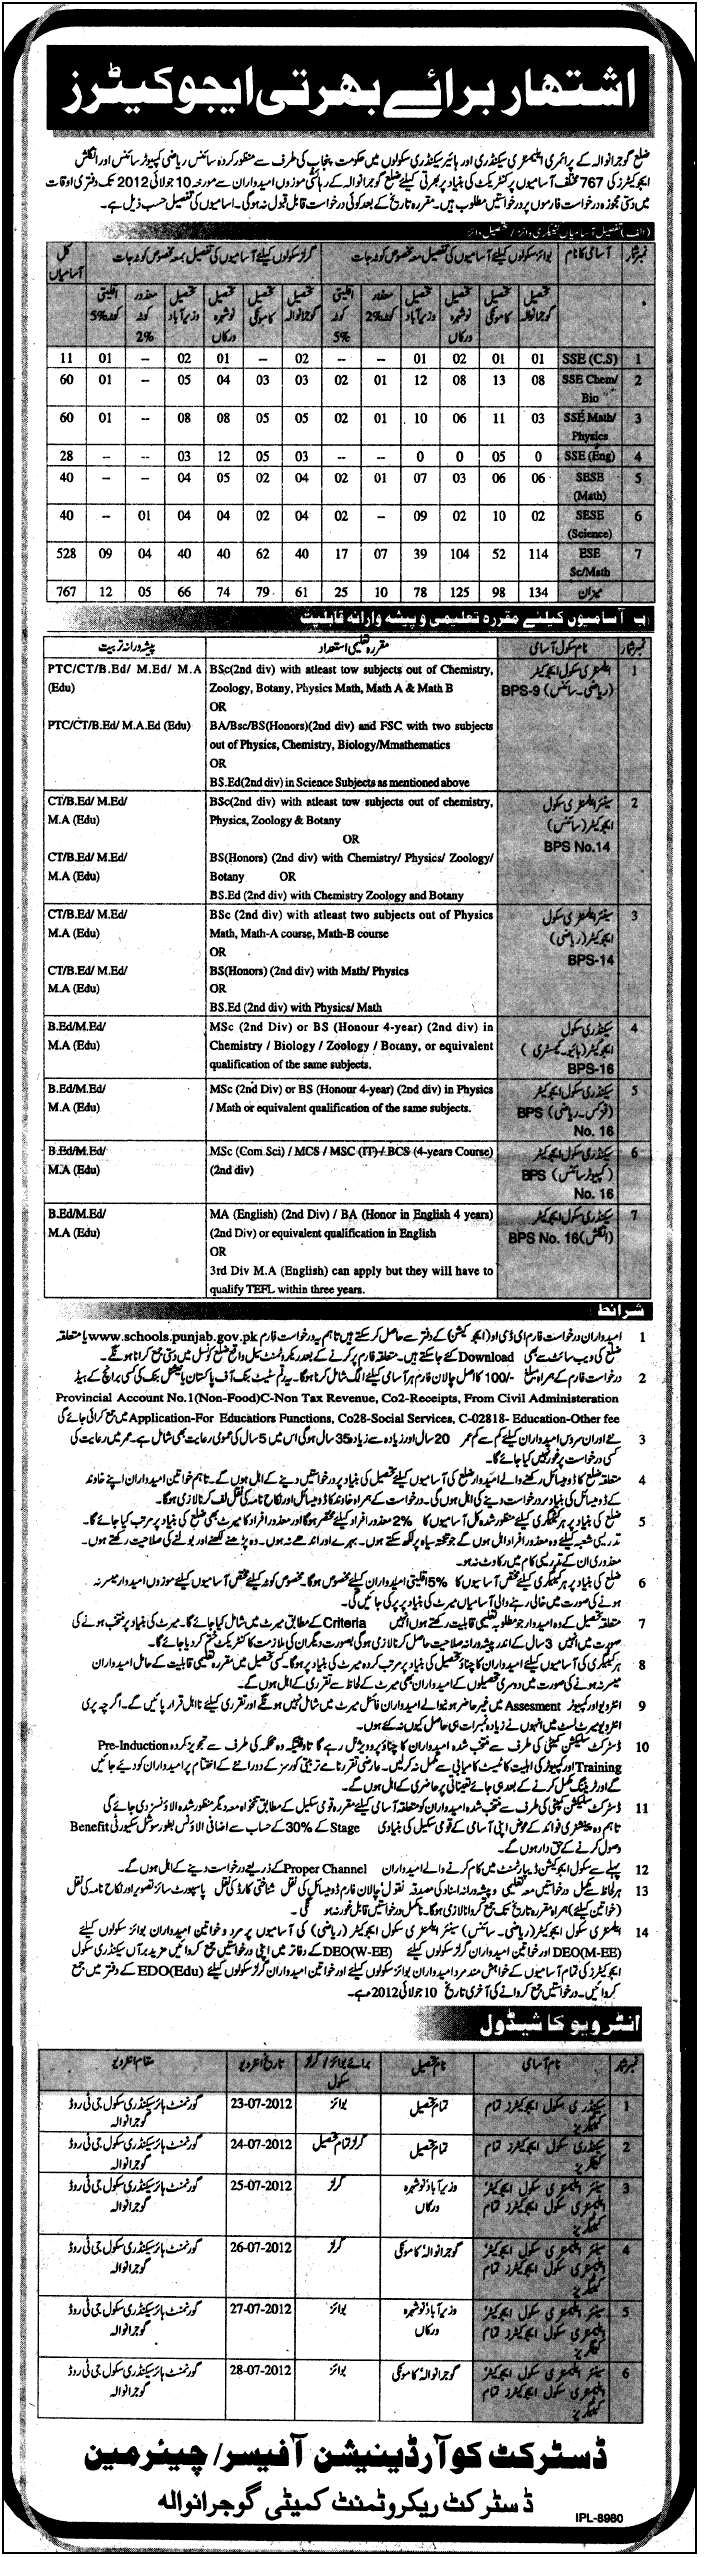 اشتہار برائے بھرتی ایجوکیٹرز
ضلع گوجرانوالہ کے پرائمری ایلیمنٹری سیکنڈری اور ہائیر سیکنڈری سکولوں میں حکومت پنجاب کی طرف سے منظور کردہ سائنس ریاضی کمپیوٹر سائنس اور انگلش
ایجوکیٹرز کی 767 مختلف آسامیوں پر کنٹریکٹ کی بنیاد پر بھرتی کیلئے ضلع گوجرانوالہ کے رہائشی موزوں امیدواران سے مورخہ 10 جولائی 2012 تک دفتری اوقات
میں دستی مجوزہ درخواست فارموں پر درخواستیں مطلوب ہیں۔ مقررہ تاریخ کے بعد کوئی درخواست قابل قبول نہ ہوگی۔ اسامیوں کی تفصیل حسب ذیل ہے۔
نمبر شمار آسامی کا نام بوائز سکولوں کیلئے آسامیوں کی تفصیل معہ مخصوص کوٹہ جات گرلز سکولوں کیلئے آسامیوں کی تفصیل بمعہ مخصوص کوٹہ جات کل آسامیاں
تحصیل گوجرانوالہ تحصیل کامونکی تحصیل نوشہرہ ورکاں تحصیل وزیرآباد معذور کوٹہ 2% اقلیتی کوٹہ 5% تحصیل گوجرانوالہ تحصیل کامونکی تحصیل نوشہرہ ورکاں تحصیل وزیرآباد معذور کوٹہ 2% اقلیتی کوٹہ 5%
1 SSE (C.S) 01 01 02 01 -- -- 02 -- 01 02 -- 01 11
2 SSE Chem/ Bio 08 13 08 12 01 02 03 03 04 05 -- 01 60
3 SSE Math/ Physics 03 11 06 10 01 02 05 05 08 08 -- 01 60
4 SSE (Eng) 0 05 0 0 -- -- 03 05 12 03 -- -- 28
5 SESE (Math) 06 06 03 07 01 02 04 02 05 04 -- -- 40
6 SESE (Science) 02 10 02 09 -- 02 04 02 04 04 01 -- 40
7 ESE Sc/Math 114 52 104 39 07 17 40 62 40 40 04 09 528
میزان 134 98 125 78 10 25 61 79 74 66 05 12 767
ب آسامیوں کیلئے مقررہ تعلیمی و پیشہ وارانہ قابلیت
نمبر شمار نام سکول آسامی مقررہ تعلیمی استعداد پیشہ ورانہ تربیت
1 ایلیمنٹری سکول ایجوکیٹر (ریاضی۔سائنس) BPS-9
BSc(2nd div) with atleast tow subjects out of Chemistry,
Zoology, Botany, Physics Math, Math A & Math B
OR
BA/Bsc/BS(Honors)(2nd div) and FSC with two subjects
out of Physics, Chemistry, Biology/Mmathematics
OR
BS.Ed(2nd div) in Science Subjects as mentioned above
PTC/CT/B.Ed/ M.Ed/ M.A
(Edu)
PTC/CT/B.Ed/ M.A.Ed (Edu)
2 سینئر ایلیمنٹری سکول
ایجوکیٹر (سائنس)
BPS No.14
BSc(2nd div) with atleast tow subjects out of chemistry,
Physics, Zoology & Botany
OR
BS(Honors) (2nd div) with Chemistry/ Physics/ Zoology/
Botany OR
BS.Ed (2nd div) with Chemistry Zoology and Botany
CT/B.Ed/ M.Ed/
M.A (Edu)
CT/B.Ed/ M.Ed/
M.A (Edu)
3 سینئر ایلیمنٹری سکول
ایجوکیٹر (ریاضی)
BPS-14
BSc (2nd div) with atleast two subjects out of Physics
Math, Math-A course, Math-B course
OR
BS(Honors) (2nd div) with Math/ Physics
OR
BS.Ed (2nd div) with Physics/ Math
CT/B.Ed/ M.Ed/
M.A (Edu)
CT/B.Ed/ M.Ed/
M.A (Edu)
4 سیکنڈری سکول
ایجوکیٹر (بائیو۔کیمسٹری)
BPS-16
MSc (2nd Div) or BS (Honour 4-year) (2nd div) in
Chemistry / Biology / Zoology / Botany, or equivalent
qualification of the same subjects.
B.Ed/M.Ed/
M.A (Edu)
5 سیکنڈری سکول ایجوکیٹر
(فزکس۔ریاضی) BPS
No. 16
MSc (2nd Div) or BS (Honour 4-year) (2nd div) in Physics
/ Math or equivalent qualification of the same subjects.
B.Ed/M.Ed/
M.A (Edu)
6 سیکنڈری سکول ایجوکیٹر
(کمپیوٹر سائنس) BPS
No. 16
MSc (Com Sci) / MCS / MSC (IT) / BCS (4-years Course)
(2nd div)
B.Ed/M.Ed/
M.A (Edu)
7 سیکنڈری سکول ایجوکیٹر
(انگلش) BPS No. 16
MA (English) (2nd Div) / BA (Honor in English 4 years)
(2nd Div) or equivalent qualification in English
OR
3rd Div M.A (English) can apply but they will have to
qualify TEFL within three years.
B.Ed/M.Ed/
M.A (Edu)
شرائط
1 امیدواران درخواست فارم ای ڈی او (ایجوکیشن) کے دفتر سے حاصل کر سکتے ہیں تاہم یہ درخواست فارم www.schools.punjab.gov.pk یا متعلقہ
ضلع کی ویب سائٹ سے بھی Download کئے جاسکتے ہیں۔ متعلقہ فارم پر کرنے کے بعد ریکروٹمنٹ سیل واقع ضلع کونسل میں دستی جمع کرانا ہونگے۔
2 درخواست فارم کے ہمراہ مبلغ 100/- کا اصل چالان فارم ہر آسامی کیلئے الگ شامل کرنا ہوگا۔ یہ رقم سٹیٹ بنک آف پاکستان یا نیشنل بنک کی کسی برانچ کے ہیڈ
Provincial Account No.1(Non-Food)C-Non Tax Revenue, Co2-Receipts, From Civil Administeration
Application-For Educatiors Functions, Co28-Social Services, C-02818- Education-Other fee میں جمع کرائی جائے گی
3 نئے اور ان سروس امیدواران کیلئے کم سے کم عمر 20 سال اور زیادہ سے زیادہ 35 سال ہوگی اس میں 5 سال کی عمومی رعایت بھی شامل ہے۔ عمر میں رعایت کی
کسی درخواست پر غور نہیں کیا جائے گا۔
4 متعلقہ ضلع کا ڈومیسائل رکھنے والے امیدوار ضلع کی آسامیوں کیلئے تحصیل کی بنیاد پر درخواستیں دینے کے اہل ہوں گے۔ تاہم خواتین امیدواران اپنے خاوند
کے ڈومیسائل کی بنیاد پر درخواست دینے کی اہل ہوں گی۔ درخواست کے ہمراہ خاوند کا ڈومیسائل اور نکاح نامہ کی نقل لف کرنا لازمی ہوگا۔
5 ضلع کی بنیاد پر ہر کیٹگری کیلئے منظور شدہ کل آسامیوں کا 2% معذور افراد کیلئے مختص ہوگا اور معذور افراد کا میرٹ بھی ضلع کی بنیاد پر مرتب کیا جائے گا۔
تدریسی شعبہ کیلئے وہ معذور افراد اہل ہوں گے جو تختہ سیاہ پر لکھ سکتے ہوں۔ بہرے اور اندھے نہ ہوں۔ وہ پڑھنے لکھنے اور بولنے کی صلاحیت رکھتے ہوں۔
معذوری ان کے تدریسی کام میں رکاوٹ نہ ہو۔
6 ضلع کی بنیاد پر ہر کیٹگری کیلئے مختص آسامیوں کا 5% اقلیتی امیدواران کیلئے مخصوص ہوگا۔ مخصوص کوٹہ کیلئے مختص آسامیوں کیلئے موزوں امیدوار میسر نہ
ہونے کی صورت میں خالی رہنے والی آسامیاں میرٹ کی بنیاد پر پر کی جائیں گی۔
7 متعلقہ تحصیل کے وہ امیدوار جو مطلوبہ تعلیمی قابلیت رکھتے ہوں انہیں Criteria کے مطابق میرٹ میں شامل کیا جائے گا۔ میرٹ کی بنیاد پر منتخب ہونے کی
صورت میں انہیں 3 سال کے اندر پیشہ ورانہ صلاحیت حاصل کرنا لازمی ہوگی بصورت دیگر ان کی ملازمت کا کنٹریکٹ ختم کر دیا جائے گا۔
8 ہر کیٹگری کی آسامیوں کیلئے امیدواران کا چناؤ تحصیل کی بنیاد پر مرتب کردہ میرٹ کی بنیاد پر ہوگا۔ کسی تحصیل میں مقررہ تعلیمی قابلیت کے حامل امیدواران
میسر نہ ہونے کی صورت میں دوسری تحصیلوں کے امیدواران بھی میرٹ کے لحاظ سے تقرری کے اہل ہوں گے۔
9 انٹرویو اور کمپیوٹر Assesment میں غیر حاضر ہونیوالے امیدواران فائنل میرٹ میں شامل نہیں ہونگے اور تقرری کیلئے نااہل قرار پائیں گے۔ اگرچہ پری
انٹرویو میرٹ لسٹ میں انہوں نے زیادہ نمبرات ہی حاصل کیوں نہ کئے ہوں۔
10 ڈسٹرکٹ سلیکشن کمیٹی کی طرف سے منتخب شدہ امیدواران کا چناؤ پروویژنل رہے گا تاوقتیکہ وہ محکمہ کی طرف سے تجویز کردہ Pre-Induction
Training اور کمپیوٹر کی اہلیت کا ٹیسٹ کامیابی سے مکمل نہ کرلیں۔ عارضی تقرر نامے تربیتی کورسز کے دورانئے کے اختتام پر امیدواران کو دیئے جائیں
گے اور ٹریننگ مکمل کرنے کے بعد ہی جائے تعیناتی پر حاضری کے اہل ہوں گے۔
11 ڈسٹرکٹ سلیکشن کمیٹی کی طرف سے منتخب شدہ امیدواران کو متعلقہ آسامی کیلئے مقررہ قومی سکیل کے مطابق تنخواہ معہ دیگر منظور شدہ الاؤنسز دی جائے گی
تاہم وہ پنشنری فوائد کے عوض اپنی آسامی کے قومی سکیل کی بنیادی Stage کے 30% کے حساب سے اضافی الاؤنس بطور سوشل سکیورٹی Benefit
وصول کرنے کے حق دار ہوں گے۔
12 پہلے سے سکول ایجوکیشن ڈیپارٹمنٹ میں کام کرنے والے امیدواران Proper Channel کے ذریعے درخواست دینے کے اہل ہوں گے۔
13 ہر لحاظ سے مکمل درخواستیں معہ تعلیمی و پیشہ ورانہ اسناد کی مصدقہ نقول، چالان فارم ڈومیسائل کی نقل شناختی کارڈ کی نقل پاسپورٹ سائز تصویر اور نکاح نامہ کی نقل
(خواتین کیلئے) ہمراہ مقررہ تاریخ تک جمع کروانا لازمی ہوگا۔ نامکمل درخواستیں قابل غور نہ ہوگی۔
14 ایلیمنٹری سکول ایجوکیٹر (ریاضی۔سائنس) سینئر ایلیمنٹری سکول ایجوکیٹر (ریاضی) کی آسامیوں پر مرد و خواتین امیدواران بوائز سکولوں کیلئے
DEO(M-EE) اور خواتین امیدواران گرلز سکولوں کیلئے DEO(W-EE) کے دفاتر میں اپنی درخواستیں جمع کروائیں مزید برآں سیکنڈری سکول
ایجوکیٹرز کی تمام آسامیوں کے خواہش مند مرد امیدواران بوائز سکولوں کیلئے اور خواتین امیدواران گرلز سکولوں کیلئے EDO(Edu) کے دفتر میں جمع
کروائیں۔ درخواستیں جمع کروانے کی آخری تاریخ 10 جولائی 2012 ہے۔
انٹرویو کا شیڈول
نمبر شمار نام آسامی نام تحصیل برائے بوائز/گرلز سکول تاریخ انٹرویو مقام انٹرویو
1 سیکنڈری سکول ایجوکیٹرز تمام کیٹگریز تمام تحصیل بوائز 23-07-2012 گورنمنٹ ہائر سیکنڈری سکول جی ٹی روڈ گوجرانوالہ
2 سیکنڈری سکول ایجوکیٹرز تمام کیٹگریز تمام تحصیل گرلز تمام تحصیل 24-07-2012 گورنمنٹ ہائر سیکنڈری سکول جی ٹی روڈ گوجرانوالہ
3 سینئر ایلیمنٹری سکول ایجوکیٹرز ایلیمنٹری سکول ایجوکیٹرز تمام کیٹگریز وزیرآباد نوشہرہ ورکاں گرلز 25-07-2012 گورنمنٹ ہائر سیکنڈری سکول جی ٹی روڈ گوجرانوالہ
4 سینئر ایلیمنٹری سکول ایجوکیٹرز ایلیمنٹری سکول ایجوکیٹرز تمام کیٹگریز گوجرانوالہ کامونکی گرلز 26-07-2012 گورنمنٹ ہائر سیکنڈری سکول جی ٹی روڈ گوجرانوالہ
5 سینئر ایلیمنٹری سکول ایجوکیٹرز ایلیمنٹری سکول ایجوکیٹرز تمام کیٹگریز وزیرآباد نوشہرہ ورکاں بوائز 27-07-2012 گورنمنٹ ہائر سیکنڈری سکول جی ٹی روڈ گوجرانوالہ
6 سینئر ایلیمنٹری سکول ایجوکیٹرز ایلیمنٹری سکول ایجوکیٹرز تمام کیٹگریز گوجرانوالہ کامونکی بوائز 28-07-2012 گورنمنٹ ہائر سیکنڈری سکول جی ٹی روڈ گوجرانوالہ
ڈسٹرکٹ کوآرڈینیشن آفیسر/چیئرمین
ڈسٹرکٹ ریکروٹمنٹ کمیٹی گوجرانوالہ
IPL-8980